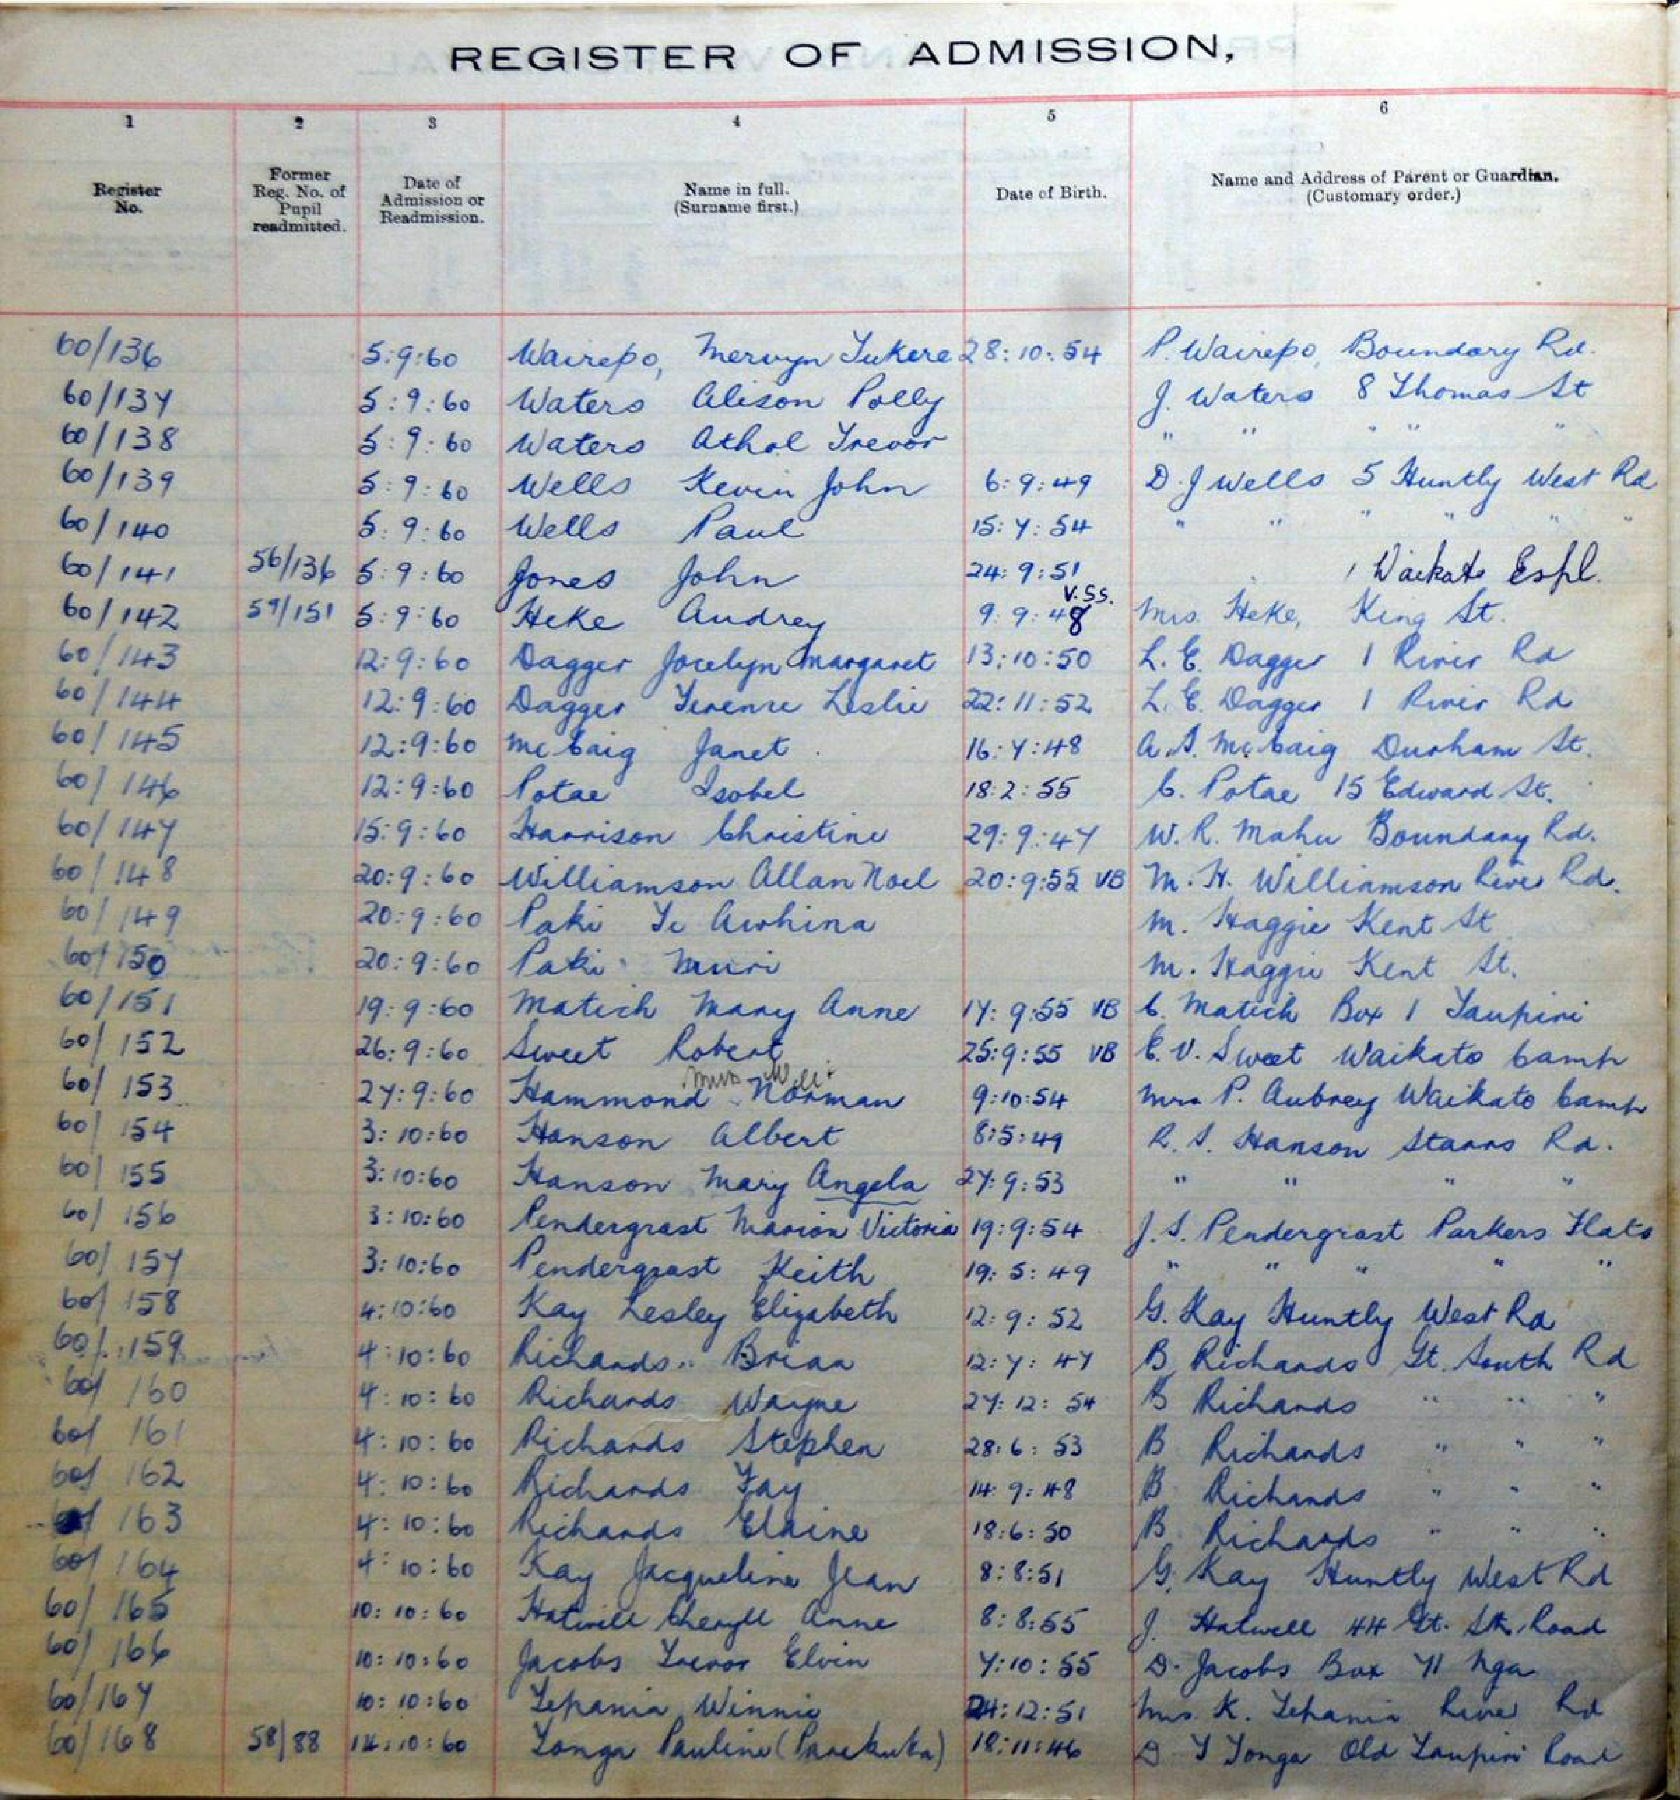 REGISTER OF ADMISSION,
1 2 3 4 5 6
Register No. Former Reg. No. of Pupil readmitted. Date of Admission or Readmission. Name in full. (Surname first.) Date of Birth. Name and Address of Parent or Guardian. (Customary order.)
60/136 5:9:60 Wairepo, Mervyn Tukere 28:10:54 P. Wairepo, Boundary Rd.
60/137 5:9:60 Waters Alison Polly J. Waters 8 Thomas St
60/138 5:9:60 Waters Athol Trevor " " " " "
60/139 5:9:60 Wells Kevin John 6:9:49 D. J Wells 5 Huntly West Rd
60/140 5:9:60 Wells Paul 15:7:54 " " " " " "
60/141 56/136 5:9:60 Jones John 24:9:51 Waikato Espl.
V.S.S.
60/142 59/151 5:9:60 Heke Audrey 9:9:48 Mrs. Heke, King St.
60/143 12:9:60 Dagger Jocelyn Margaret 13:10:50 L. E. Dagger 1 River Rd
60/144 12:9:60 Dagger Terence Leslie 22:11:52 L. E. Dagger 1 River Rd
60/145 12:9:60 McCaig Janet 16:7:48 A. S. McCaig Durham St.
60/146 12:9:60 Potae Isobel 18:2:55 C. Potae 15 Edward St.
60/147 15:9:60 Harrison Christine 29:9:47 W. R. Mahu Boundary Rd.
60/148 20:9:60 Williamson Allan Noel 20:9:55 VB M. H. Williamson River Rd.
60/149 20:9:60 Paki Te Awhina M. Haggie Kent St
60/150 20:9:60 Paki Muri M. Haggie Kent St.
60/151 19:9:60 Matich Mary Anne 17:9:55 VB C. Matich Box 1 Taupiri
60/152 26:9:60 Sweet Robert 25:9:55 VB E. V. Sweet Waikato Camp
60/153 27:9:60 Hammond Norman 9:10:54 Mrs P. Aubrey Waikato Camp
60/154 3:10:60 Hanson Albert 8:5:49 R. S. Hanson Starrs Rd.
60/155 3:10:60 Hanson Mary Angela 27:9:53 " " " "
60/156 3:10:60 Pendergrast Marion Victoria 19:9:54 J. S. Pendergrast Parkers Flats
60/157 3:10:60 Pendergrast Keith 19:5:49 " " " " "
60/158 4:10:60 Kay Lesley Elizabeth 12:9:52 G. Kay Huntly West Rd
60/159 4:10:60 Richards Brian 12:7:47 B. Richards Gt. South Rd
60/160 4:10:60 Richards Wayne 27:12:54 B Richards " " "
60/161 4:10:60 Richards Stephen 28:6:53 B Richards " " "
60/162 4:10:60 Richards Fay 14:9:48 B Richards " " "
60/163 4:10:60 Richards Elaine 18:6:50 B. Richards " " "
60/164 4:10:60 Kay Jacqueline Jean 8:8:51 G. Kay Huntly West Rd
60/165 10:10:60 Hatwell Cheryll Anne 8:8:55 J. Hatwell 44 Gt. Sth. Road
60/166 10:10:60 Jacobs Trevor Elvin 7:10:55 D. Jacobs Box 71 Nga
60/167 10:10:60 Tepania Winnie 24:12:51 Mrs. K. Tepania River Rd
60/168 58/88 :10:60 Tonga Pauline (Parekuka) 18:11:46 D T Tonga Old Taupiri Road